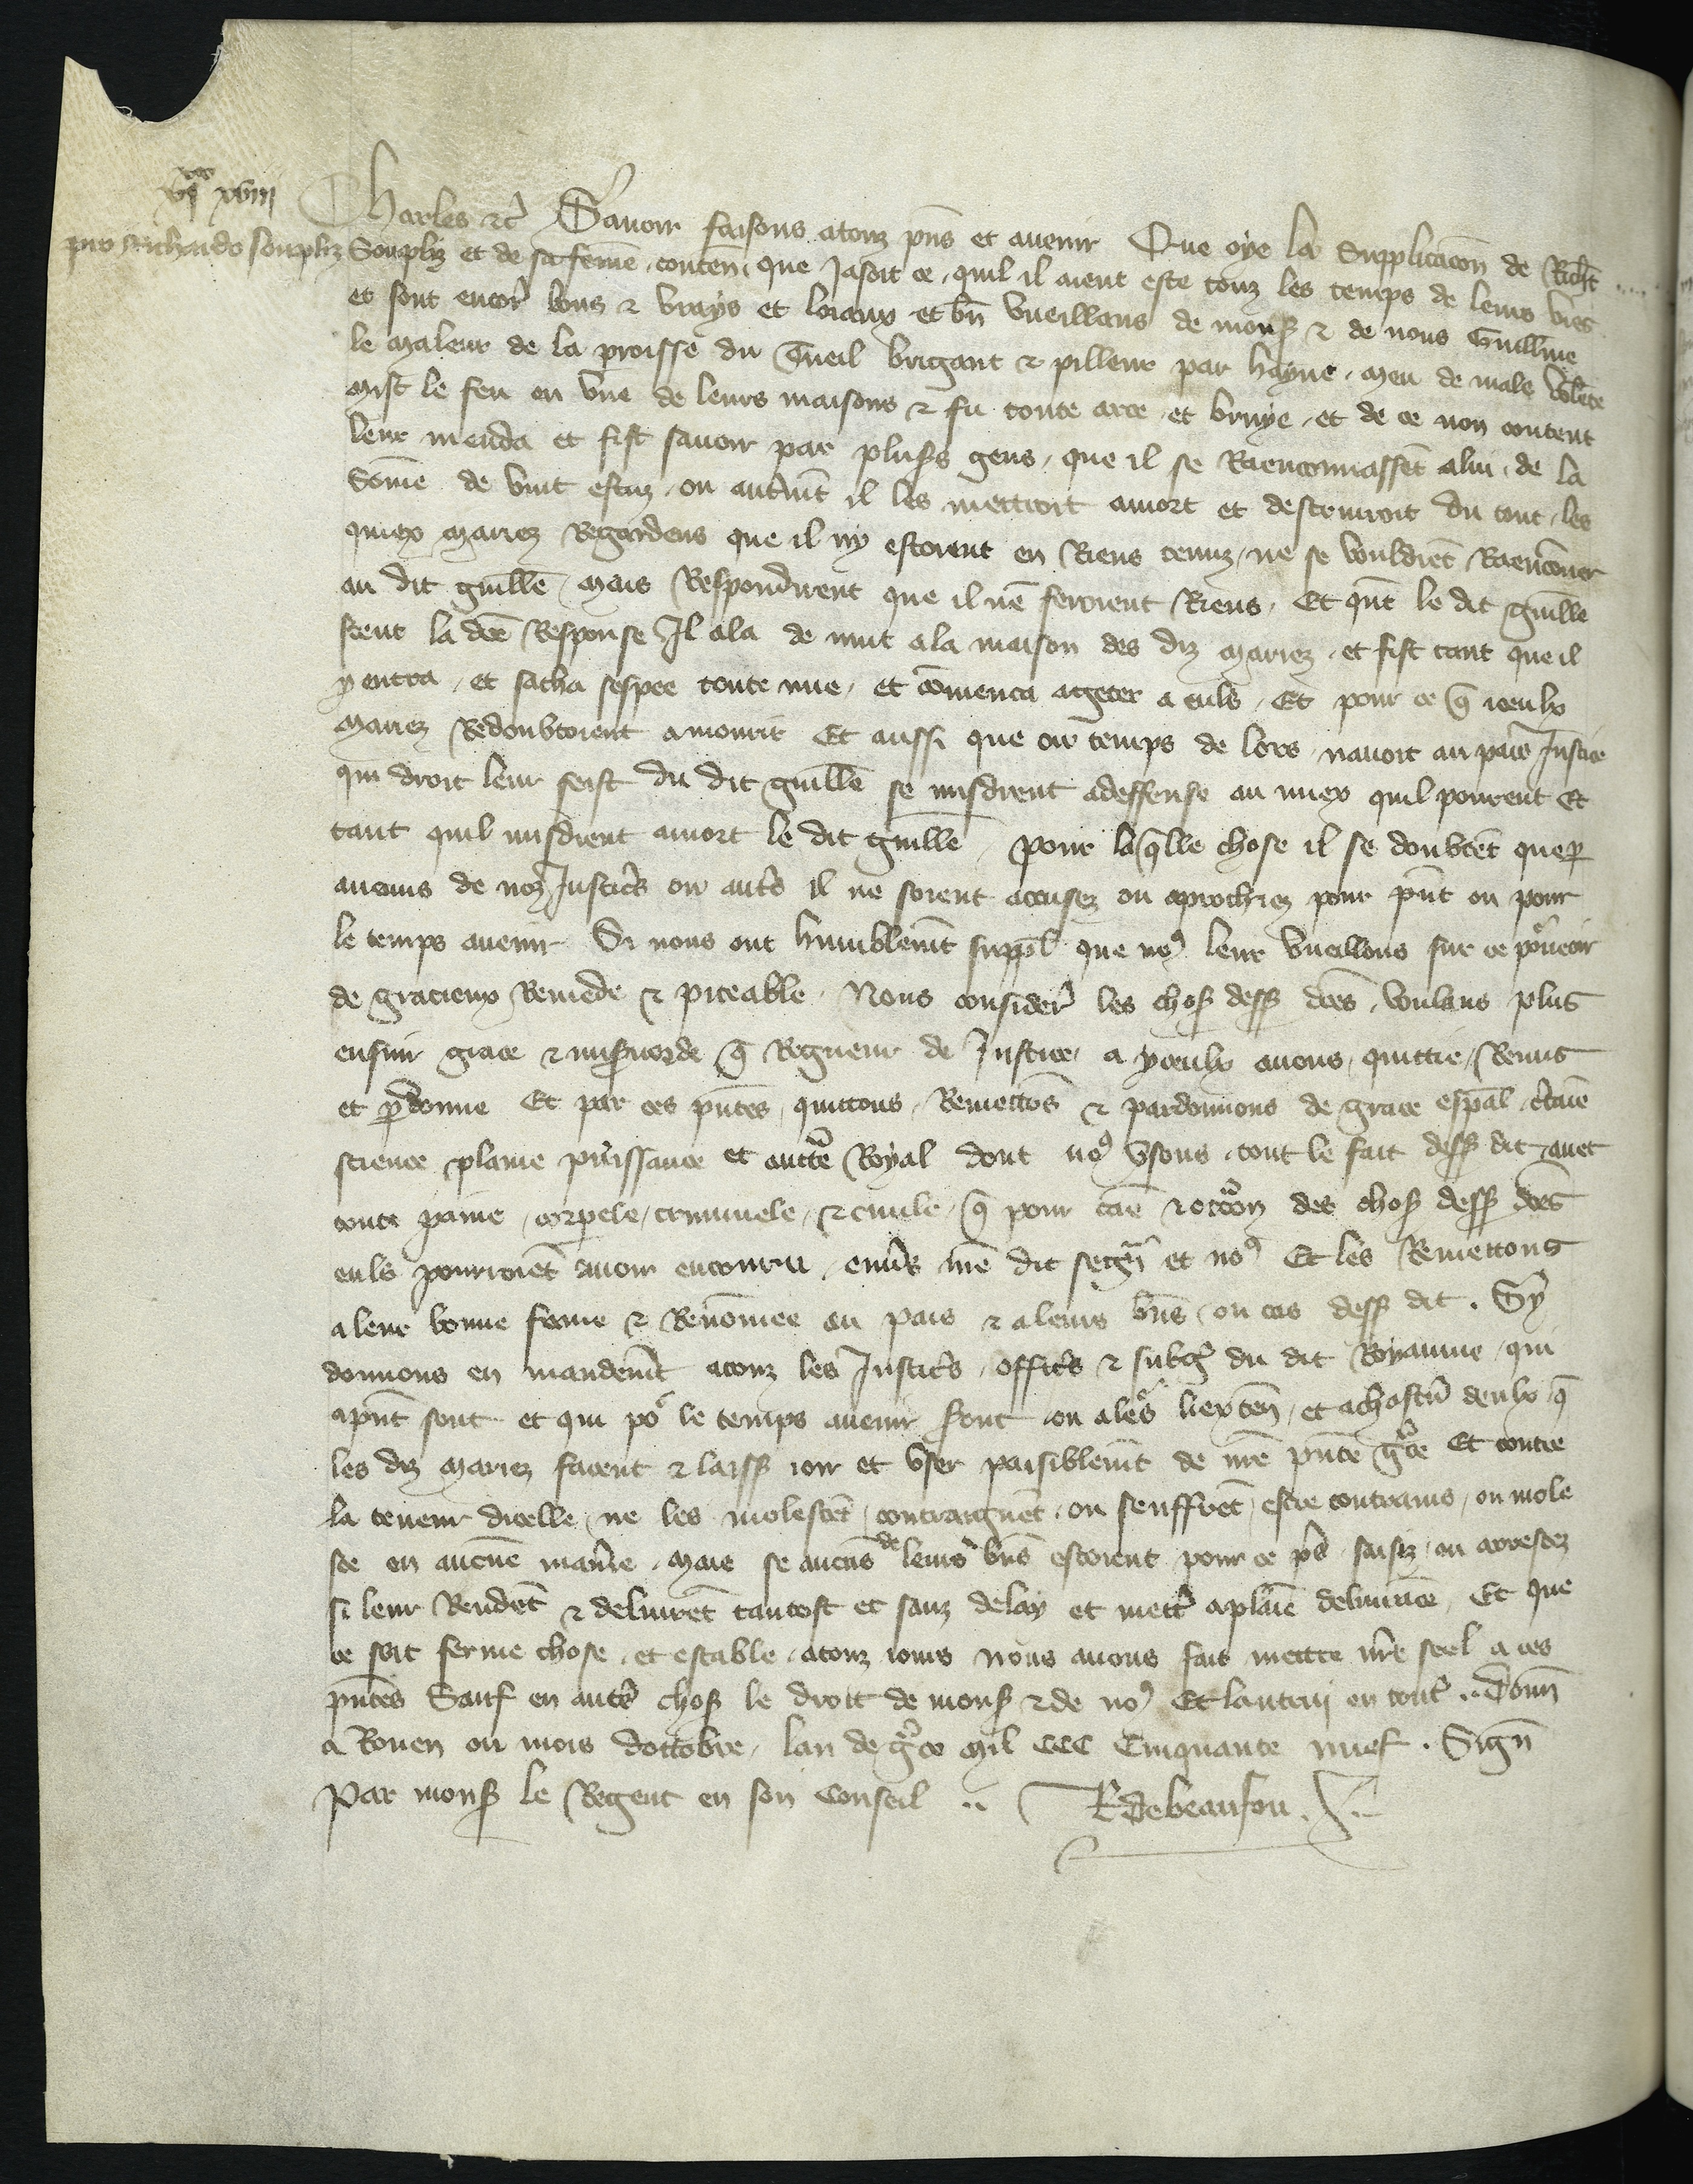 vixx xviii
pro Richardo Soupliz
Charles etc Savoir faisons a touz pns et avenir Que oye la Supplicacon de Richt
Soupliz et de sa feme, conten que Jasoit ce quil il aient este touz les temps de leurs vies
et sont encor bons & vrays et loiaux et bn vueillans de mons & de nous Guillme
le Maleur de la proisse du Tueil brigant & pilleur par hayne, meu de male volete
mist le feu en une de leurs maisons & fu toute arce et bruye, et de ce non content
leur menda et fist savoir par plus gens, que il se Raenconnassent a lui, de la
Some de vint escuz, ou autmt il les mettroit a mort et destruiroit du tout, les
quiex Mariez Regardens que il ny estoient en Riens tenuz, ne se vouldret Raenconer
au dit guille, Mais Respondirent que il ne feroient Riens, Et qnt le dit guille
scent la dce Response Il ala de nuit a la maison des diz Mariez, et fist tant que il
y entra, et sacha sespee toute nue, et comenca a geter a euls, Et pour ce q iceulx
Mariez Redoubtoient a mourir Et aussi que ou temps de lors, navoit au pais Justice
qui droit leur feist du dit guille se misdrent a deffense au miex quil pourent Et
tant quil misdrent a mort le dit guille, pour laqlle chose il se doubtet que p
aucuns de noz Justics ou auts il ne soient accusez ou aprochiez pour pnt ou pour
le temps avenir Si nous ont humblemt suppl que no9 leur vueillons sur ce pourveoir
de gracieux Remede & piteable, Nous consider les chos dess dces, voulans plus
ensuir grace & misicorde q Regueur de Justice, a yceulx avons, quittie, Remis
et pdonne Et par ces pntes, quittons, Remettos & pardonnons de grace espal, ctaie
science plaine puissance et auctte Royal dont no9 usons, tout le fait dess dit avec
toute paine, corpele, criminele, & civile, q pour cae & occon des chos dess dces
euls pourroiet avoir encouru, envs me dit segn et no9 Et les Remettons
a leur bonne fame & Renomee au pais & a leurs bns, ou cas dess dit. Sy
donnons en mandemt a touz les Justics, offics & subgz du dit Royaume, qui
a pnt sont et qui po le temps avenir sont ou a les liexten, et a chascu deulx q
les diz Mariez facent & laiss joir et user paisiblemt de nre pnte gce Et contre
la teneur dicelle ne les molestet, contraignet, ou seuffret, estre contrains, ou mole
ste en aucue manre, Mais se aucus de leurs bns estoient pour ce ps saisiz, ou arrestez
si leur Rendet & delivret tantost et sanz delay et mett a plaie delivrance, Et que
ce soit ferme chose, et estable, a touz jours Nous avons fait mettre nre seel a ces
pntes Sauf en auts chos le droit de mons & de no9 Et lautrui en tout .. Donn
a Rouen ou mois doctobre, lan de gce Mil CCC Cinquante nuef. Sign
Par mons le Regent en son Conseil .. R de beaufou.